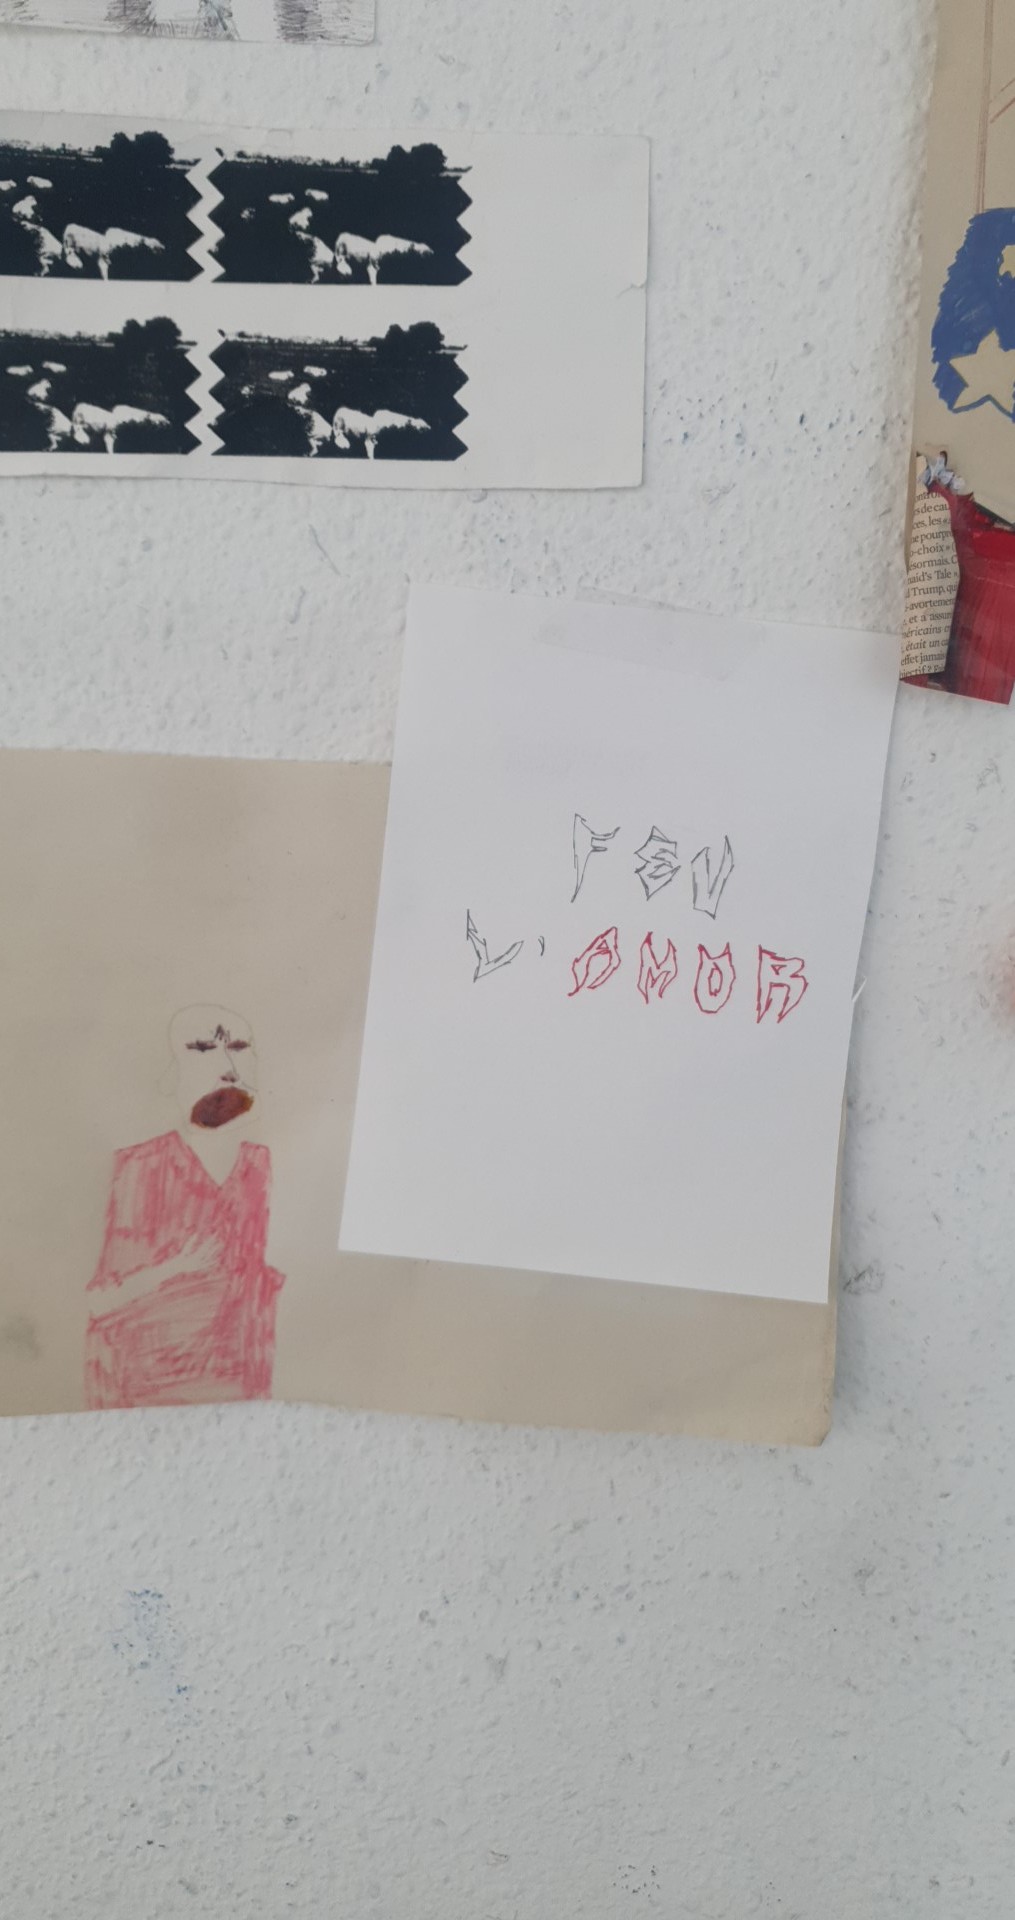 s de cau
ces, les «
ne pourpr
o-choix » (
ésormais. C
naid's Tale »,
d Trump, qu
-avortemen
, et a assur
éricains
, était un ca
effet jamais
bjectif ?
FEV
L'AMOR